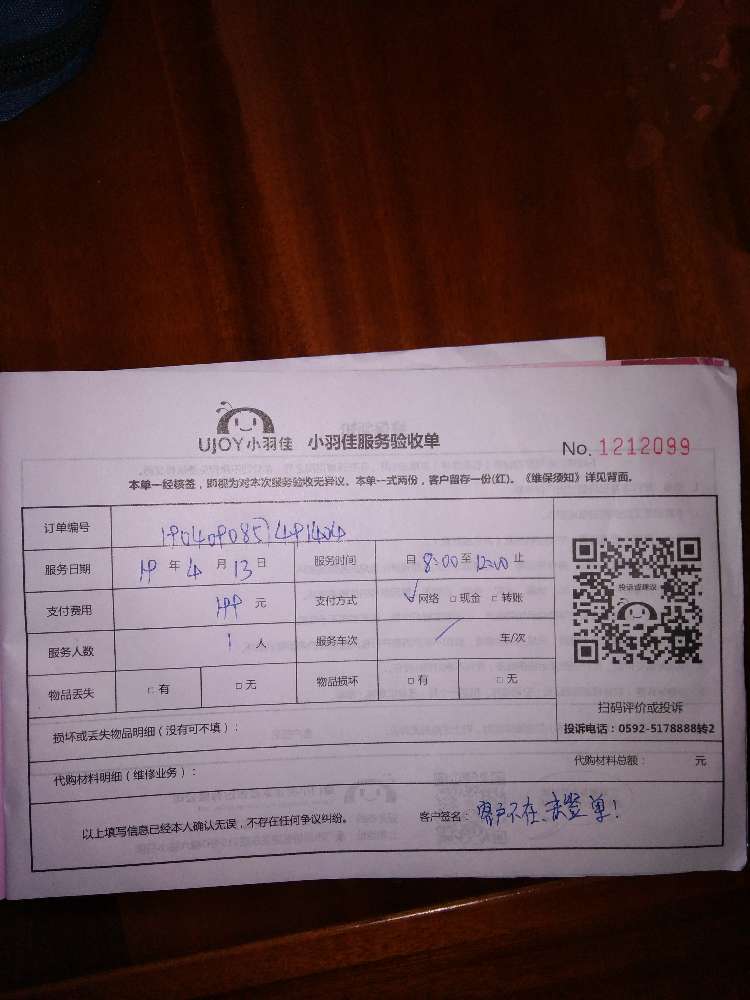 UJOY小羽佳 小羽佳服务验收单
No. 1212099
本单一经核签，即视为对本次服务验收无异议。本单一式两份，客户留存一份(红)。《维保须知》详见背面。
订单编号
服务日期 19 年 4 月 13 日 服务时间 自 8:00 至 12:00 止
支付费用 199 元 支付方式 √网络 □现金 □转账
服务人数 1 人 服务车次 / 车/次
物品丢失 □有 □无 物品损坏 □有 □无
投诉或建议
扫码评价或投诉
投诉电话：0592-5178888转2
损坏或丢失物品明细（没有可不填）：
代购材料明细（维修业务）： 代购材料总额： 元
以上填写信息已经本人确认无误，不存在任何争议纠纷。 客户签名：客户不在、未签单！